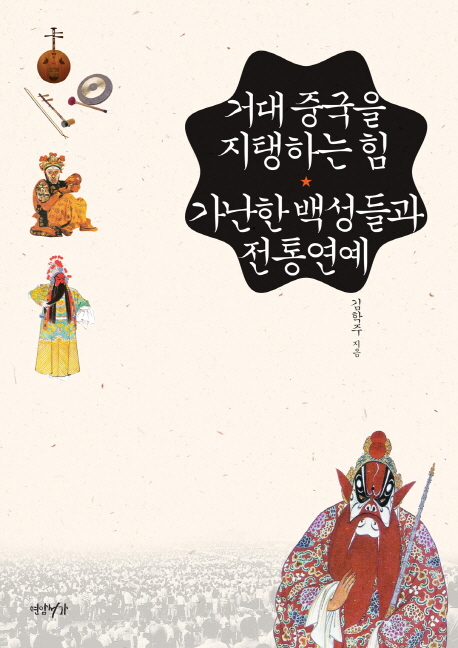 거대 중국을
지탱하는 힘
가난한 백성들과
전통연예
김학주 지음
연암서가